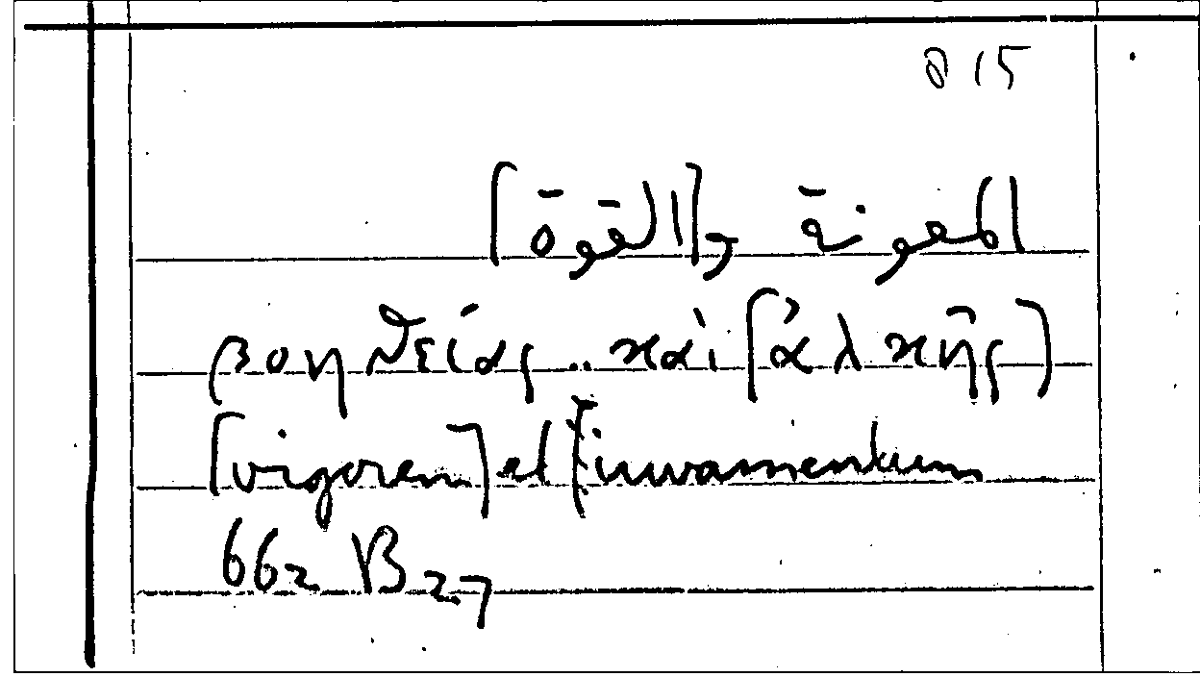 815
المعونة و[القوة]
βοηθείας .. καὶ [ἀλκῆς]
[vigorem] et iuvamentum
662 B 27